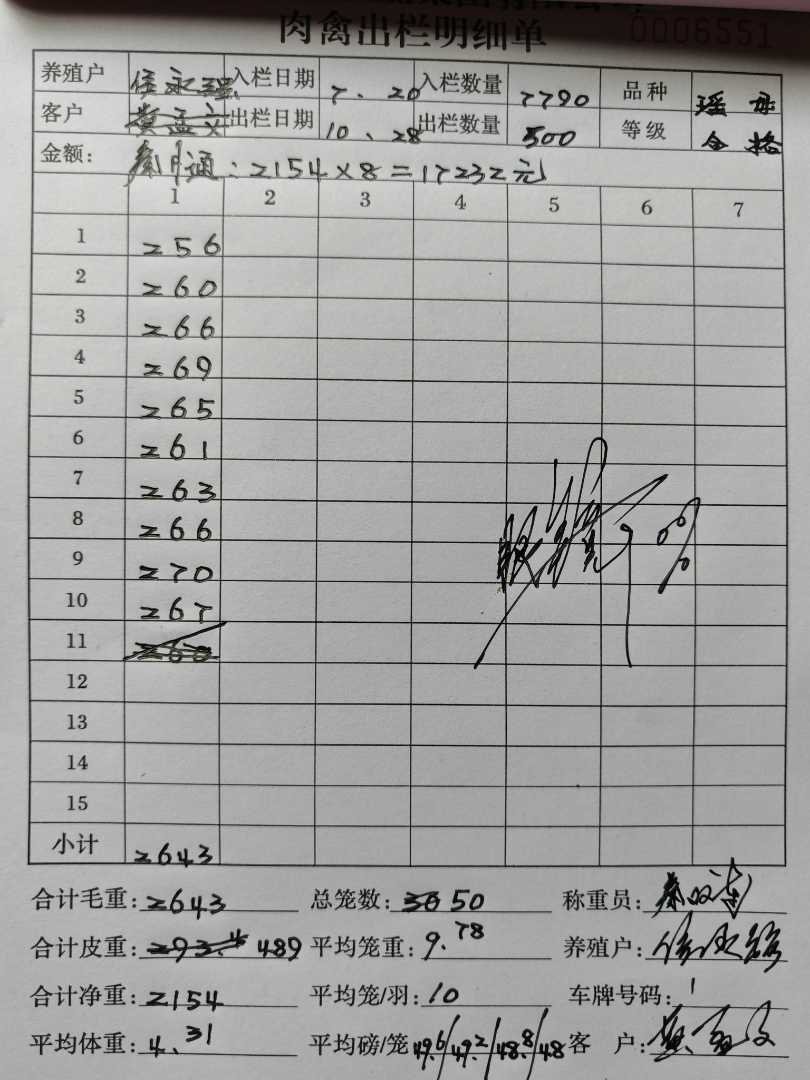 肉禽出栏明细单 0006551
养殖户 侯永强 入栏日期 7.20 入栏数量 7790 品种 瑶母
客户 黄孟文 出栏日期 10.28 出栏数量 500 等级 合格
金额: 通:2154×8=17232元
1 2 3 4 5 6 7
1 256
2 260
3 266
4 269
5 265
6 261
7 263
8 266
9 270
10 267
11 260
12
13
14
15
小计 2643
合计毛重: 2643 总笼数: 50 称重员:
合计皮重: 293.4 489 平均笼重: 9.78 养殖户: 侯永强
合计净重: 2154 平均笼/羽: 10 车牌号码: 1
平均体重: 4.31 平均磅/笼 49.6/49.2/48.8/48 客 户: 黄孟文